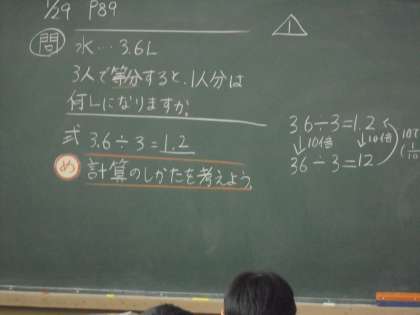 1/29 P89
問 水…3.6L
3人で等分すると、1人分は
何Lになりますか。
式 3.6÷3=1.2
め 計算のしかたを考えよう。
1
3.6÷3=1.2
↓10倍 ↓10倍
36÷3=12
1/10